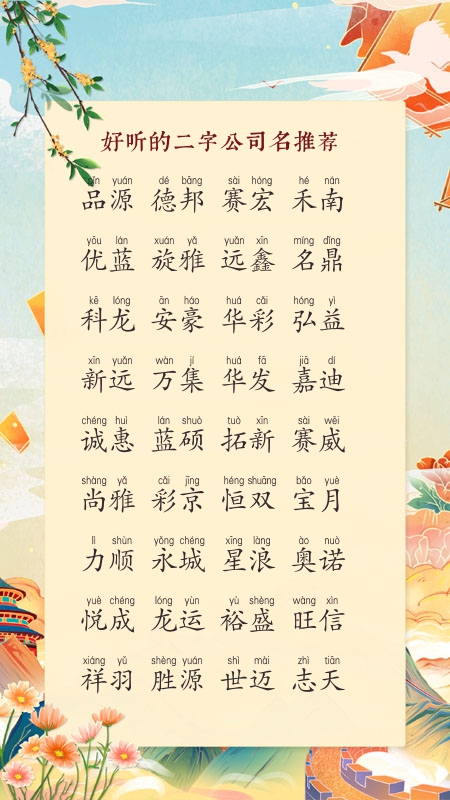 好听的二字公司名推荐
pǐn yuán dé bāng sài hóng hé nán
品源 德邦 赛宏 禾南
yōu lán xuán yǎ yuǎn xīn míng dǐng
优蓝 旋雅 远鑫 名鼎
kē lóng ān háo huá cǎi hóng yì
科龙 安豪 华彩 弘益
xīn yuǎn wàn jí huá fā jiā dí
新远 万集 华发 嘉迪
chéng huì lán shuò tuò xīn sài wēi
诚惠 蓝硕 拓新 赛威
shàng yǎ cǎi jīng héng shuāng bǎo yuè
尚雅 彩京 恒双 宝月
lì shùn yǒng chéng xīng làng ào nuò
力顺 永城 星浪 奥诺
yuè chéng lóng yùn yù shèng wàng xìn
悦成 龙运 裕盛 旺信
xiáng yǔ shèng yuán shì mài zhì tiān
祥羽 胜源 世迈 志天